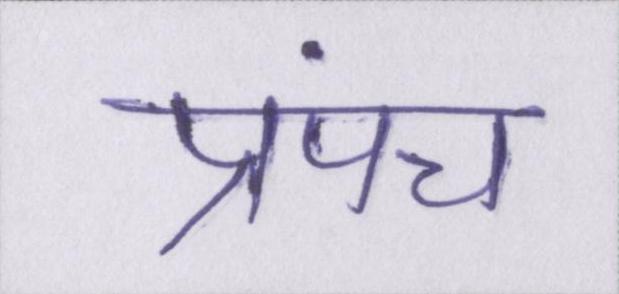 प्रपंच